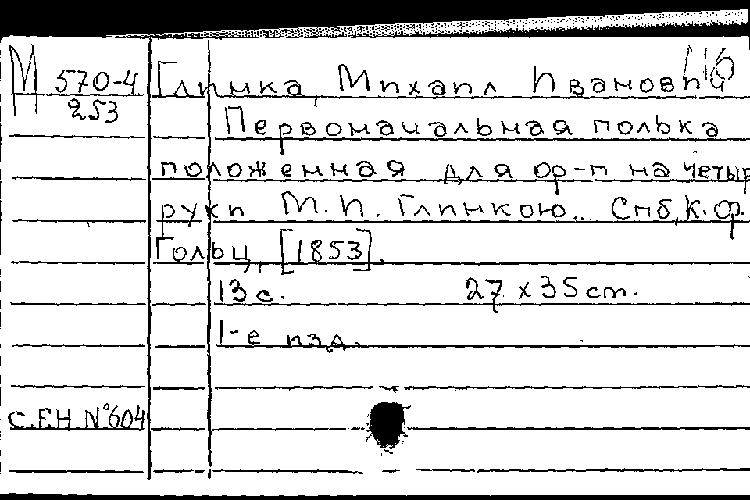 М 570-4 Глинка, Михаил Иванович 116
253 Первоначальная полька
положенная для ф-п на четыре
руки М. И. Глинкою.. Спб, К. Ф.
Гольц, [1853].
13 с. 27 х 35 cm.
1-е изд.
С.Е.Н. № 604